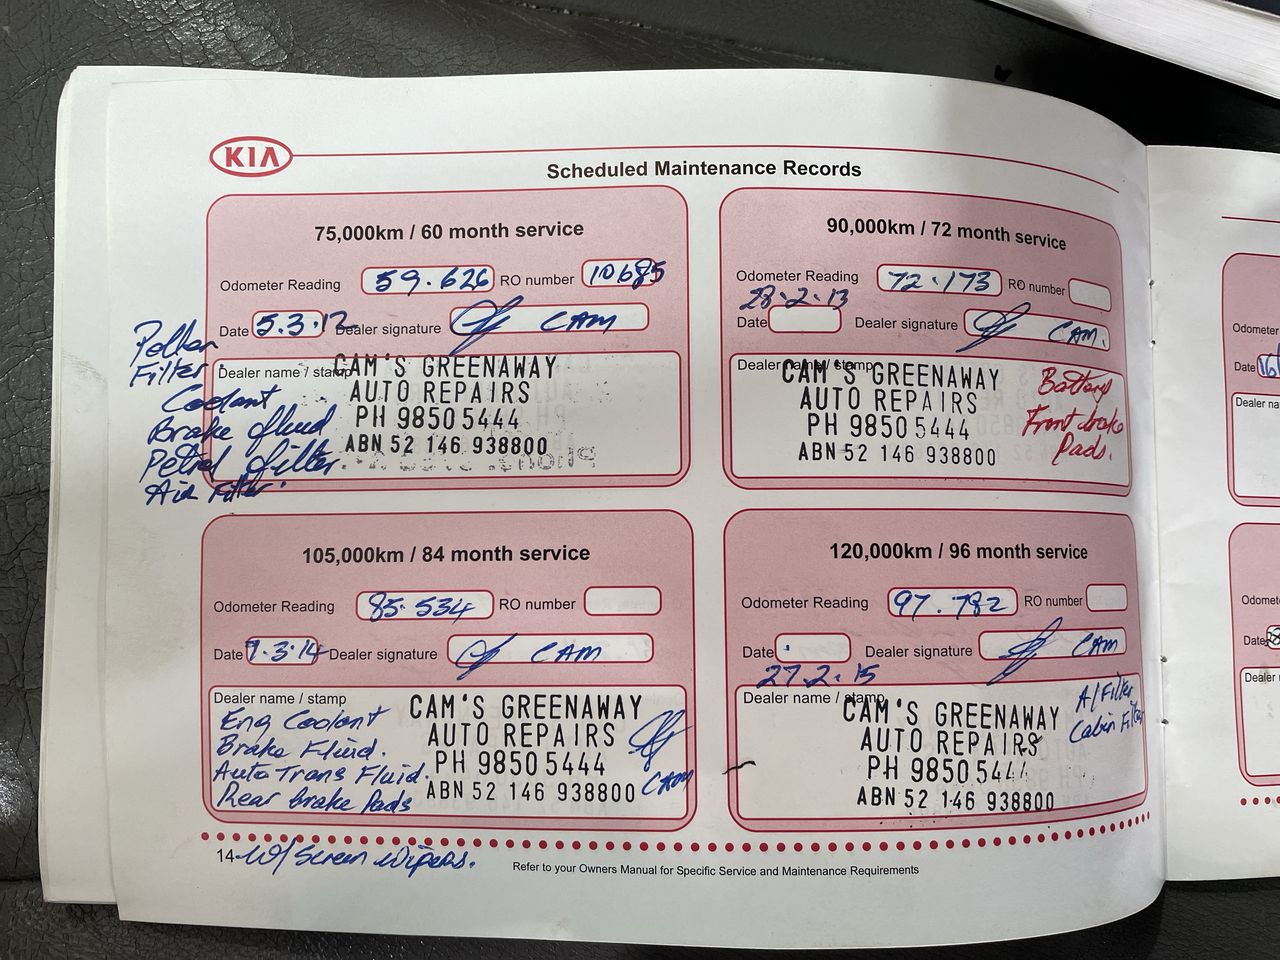 KIA
Scheduled Maintenance Records
75,000km / 60 month service
Odometer Reading 59.626 RO number 10685
Date 5.3.12 Dealer signature CAM
Dealer name / stamp
CAM'S GREENAWAY
AUTO REPAIRS
PH 9850 5444
ABN 52 146 938800
Pollen
Filter
Coolant
Brake fluid
Petrol filter
Air Filter.
90,000km / 72 month service
Odometer Reading 72.173 RO number
28.2.13
Date Dealer signature CAM.
Dealer name / stamp
CAM'S GREENAWAY
AUTO REPAIRS
PH 9850 5444
ABN 52 146 938800
Battery
Front brake
Pads.
105,000km / 84 month service
Odometer Reading 85.534 RO number
Date 7.3.14 Dealer signature CAM
Dealer name / stamp
CAM'S GREENAWAY
AUTO REPAIRS
PH 9850 5444
ABN 52 146 938800
Eng Coolant
Brake Fluid.
Auto Trans Fluid.
Rear brake Pads
CAM
W/Screen Wipers.
120,000km / 96 month service
Odometer Reading 97.782 RO number
Date Dealer signature CAM
27.2.15
Dealer name / stamp
CAM'S GREENAWAY
AUTO REPAIRS
PH 9850 5444
ABN 52 146 938800
A/Filter
Cabin Filter
14
Refer to your Owners Manual for Specific Service and Maintenance Requirements
Odomete
Date 16
Dealer na
Odomet
Date
Dealer